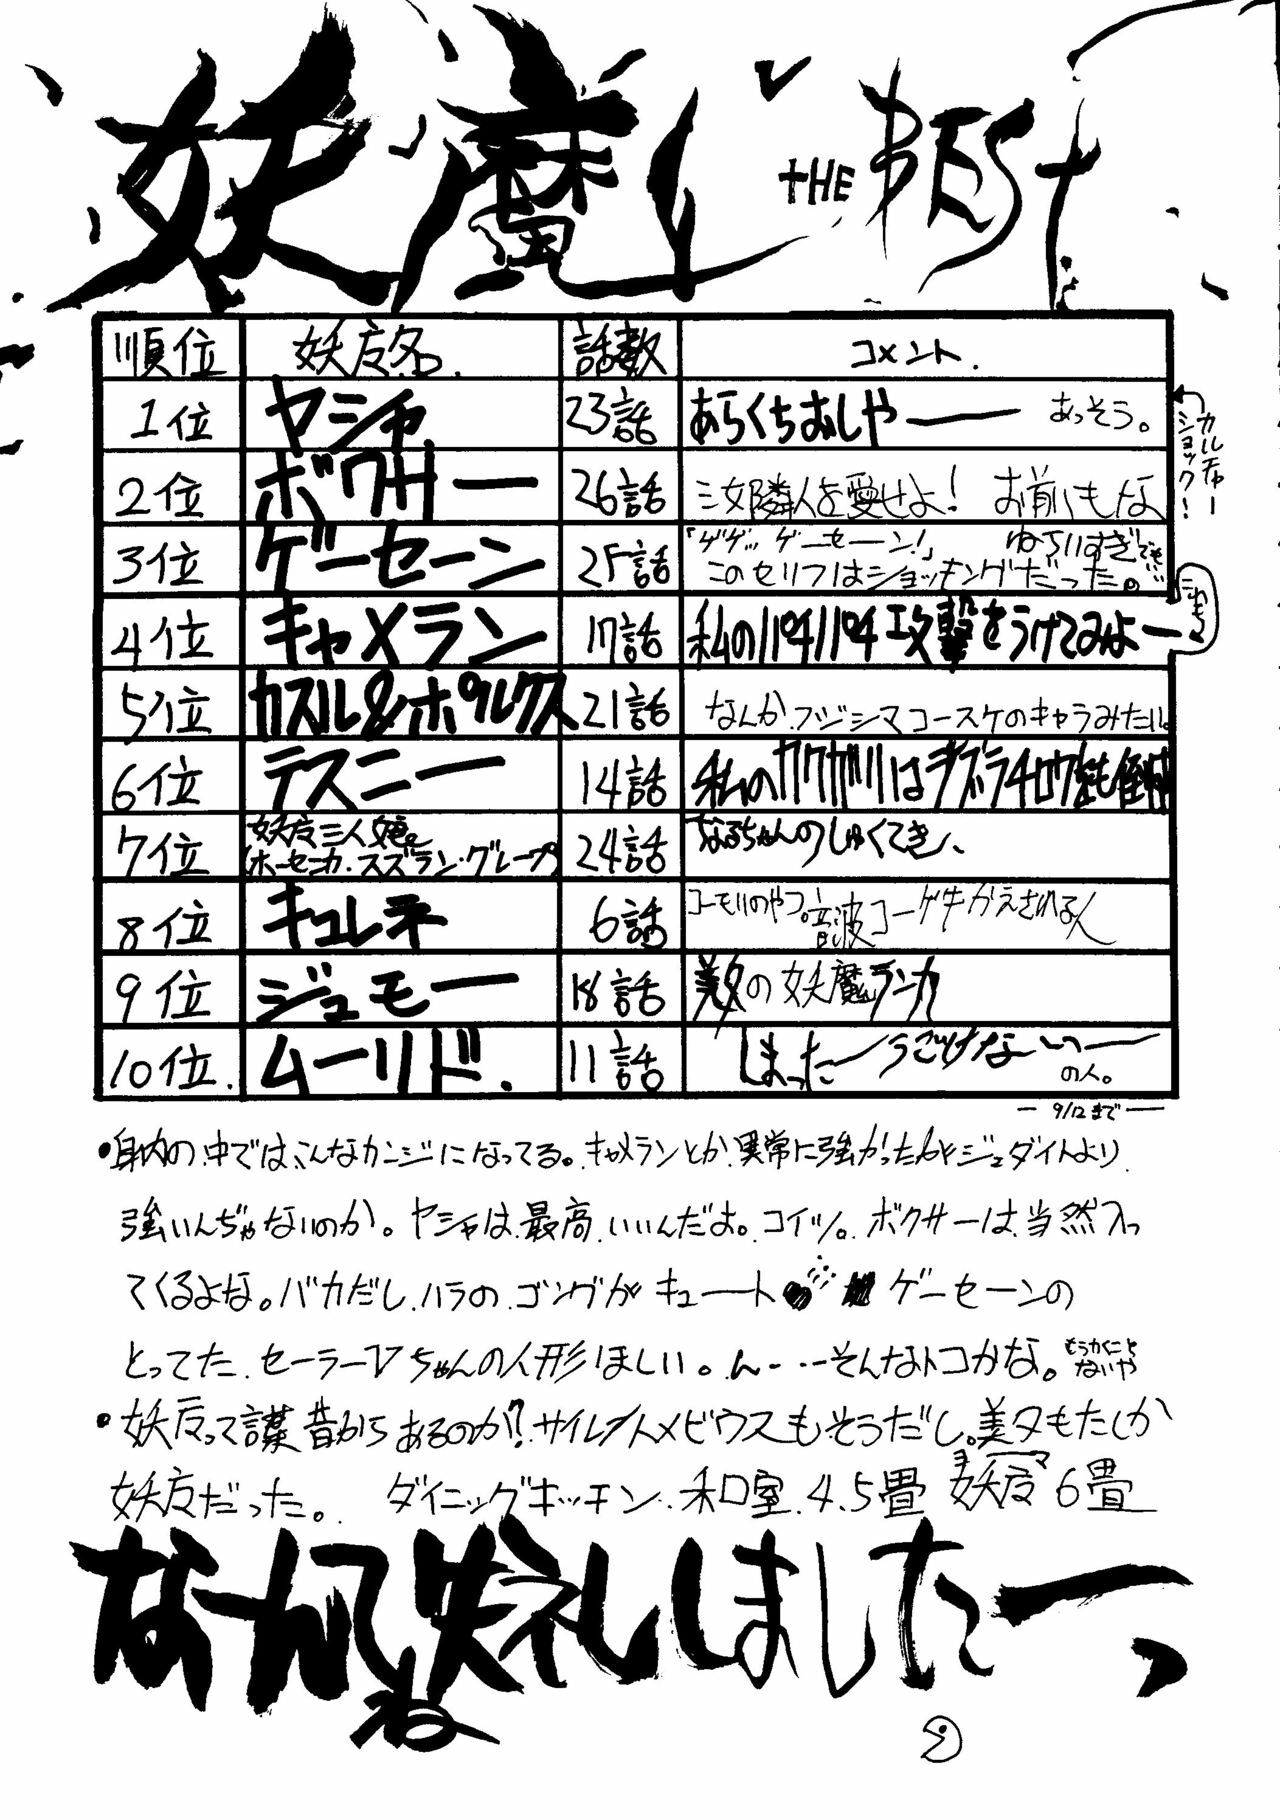 妖魔し THE BEST
順位 妖广名 話数 コメント
1位 ヤシャ 23話 あらくちおしやー あっそう。
カルチャーショック!
2位 ボクサー 26話 汝隣人を愛せよ! お前もな
3位 ゲーセーン 25話 「ゲゲッ ゲーセーン!」 ねらいすぎでも…
このセリフはショッキングだった。
これもん
4位 キャメラン 17話 私のパチパチ攻撃をうけてみよー
5位 カスル&ポルクス 21話 なんか、フジシマコースケのキャラみたい。
6位 テスニー 14話 私のカクガリはヂズラチロウをも
7位 妖广三人娘
(ホーセンカ・スズラン・グレープ) 24話 なるちゃんのしゅくてき、
8位 キュレネ 6話 コーモリのやつ。音波コーゲキかえされる人
9位 ジュモー 18話 美夕の妖魔ランカ
10位. ムーリド. 11話 しまったーうごけないっー の人。
— 9/12まで —
•身内の中では、こんなカンジになってる。キャメランとか異常に強かったねジェダイトより
強いんぢゃないのか。ヤシャは最高、いいんだよ。コイツ。ボクサーは当然入っ
てくるよな。バカだし、ハラのゴングがキュート ゲーセーンの
とってた、セーラーVちゃんの人形ほしい。ん…そんなトコかな。もうかくことないや
•妖广って言葉昔からあるのか?サイレントメビウスもそうだし。美夕もたしか
妖广だった。 ダイニングキッチン、和室、4.5畳 妖广ヨーマ 6畳
なーんてね 失礼しましたーっ